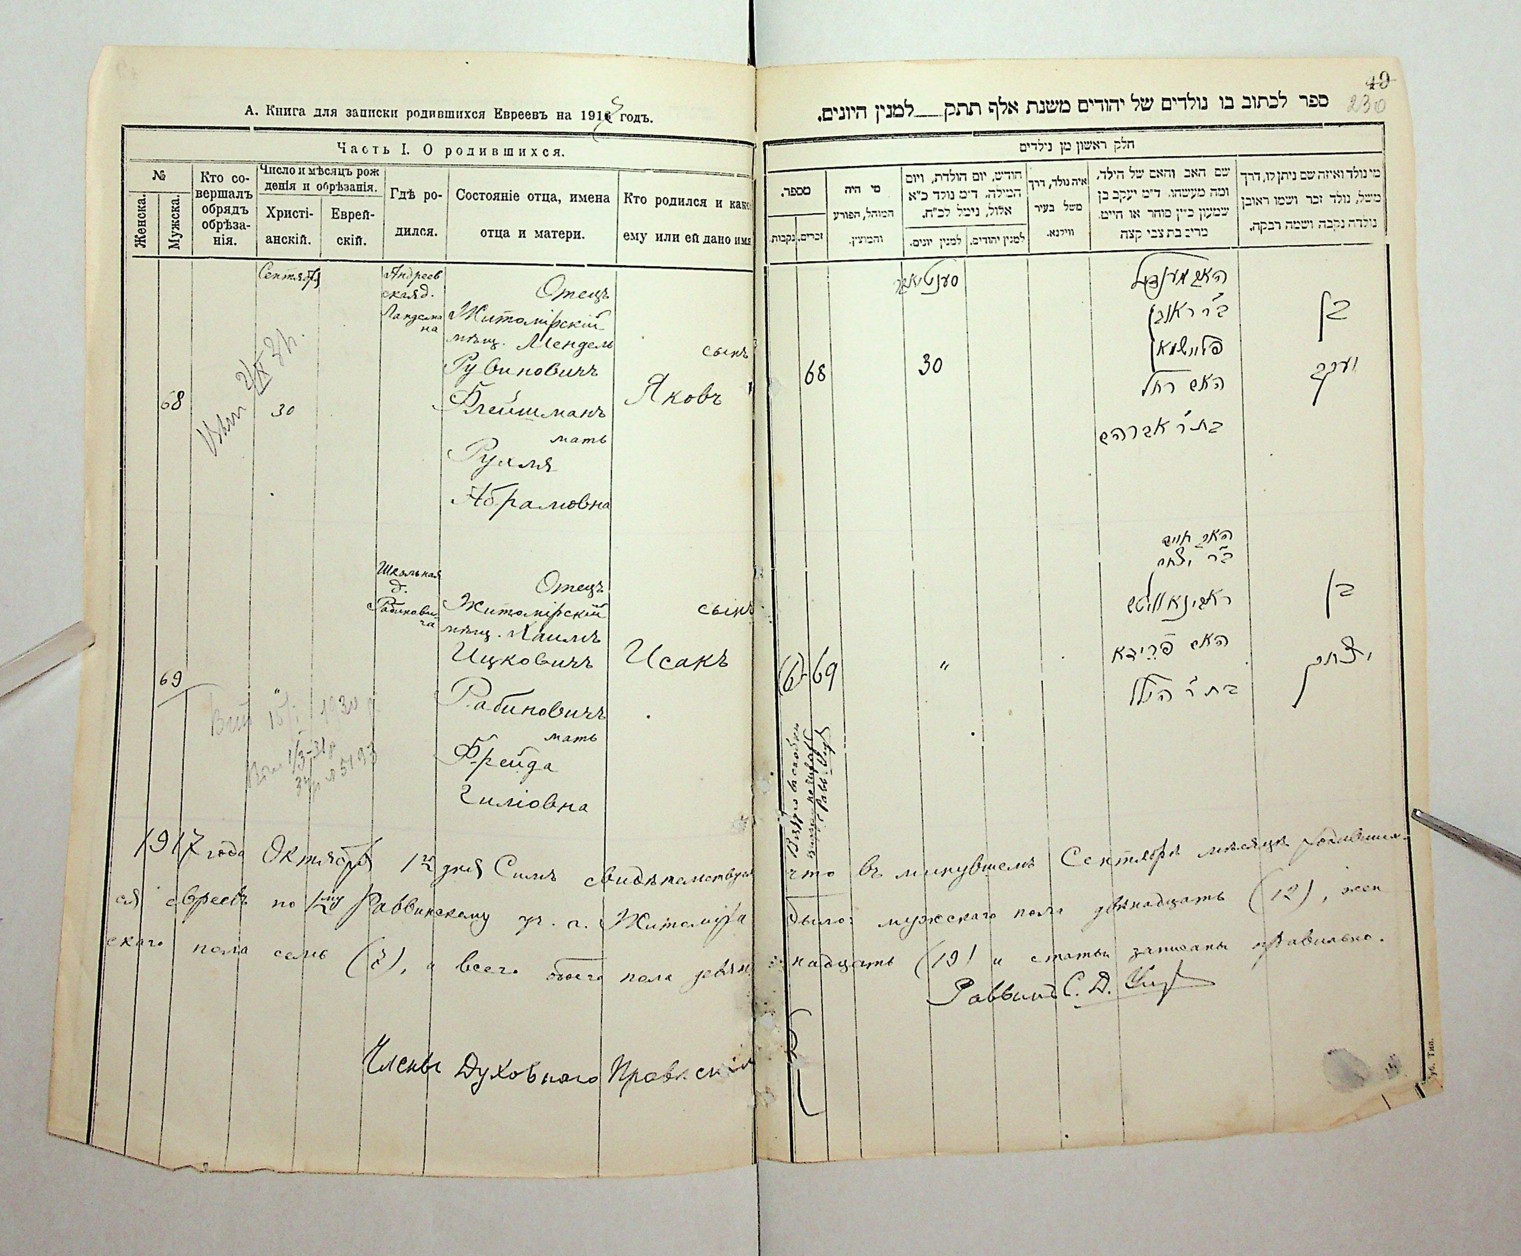 А. Книга для записки родившихся Евреевъ на 1917 годъ.
Часть I. О родившихся.
№
Женска.
Мужска.
Кто со-
вершалъ
обрядъ
обрѣза-
нія.
Число и мѣсяцъ рож
денія и обрѣзанія.
Христі-
анскій.
Еврей-
скій.
Гдѣ ро-
дился.
Состояніе отца, имена
отца и матери.
Кто родился и како
ему или ей дано имя
68
Сентября
30
Андреев
ская д.
Ландсма
на
Отецъ
Житомірскій
мѣщ. Мендель
Рувиновичъ
Флейшманъ
мать
Рухля
Абрамовна
сынъ
Яковъ
69
"
Школьная
д.
Рабинови-
ча
Отецъ
Житомірскій
мѣщ. Хаимъ
Ицковичъ
Рабиновичъ
мать
Фрейда
Гилловна
сынъ
Исакъ
49
230
ספר לכתוב בו נולדים של יהודים משנת אלף תתק למנין היונים.
חלק ראשון מן נילדים
מספר.
נקבות.
זכרים.
מי היה
המוהל, הפורע
והמוצץ.
חודש, יום הולדת, ויום
המילה. ד״מ נולד כ״א
אלול, נימל לכ״ח.
למנין יונים.
למנין יהודים.
איה נולד, דרך
משל בעיר
ווילנא.
שם האב והאם של הילד,
ומה מעשהו. ד״מ יעקב בן
שמעון כ״ץ סוחר או חייט.
מרים בת צבי קצה
מי נולד ואיזה שם ניתן לו, דרך
משל, נולד זכר ושמו ראובן
נולדה נקבה ושמה רבקה.
68
30
האב מענדל
ב״ר ראובן
פליישמאן
האם רחל
בת ר׳ אברהם
בן
יעקב
69
"
האב חיים
ב״ר יצחק
ראבינאוויטש
האם פריידא
בת ר׳ הילל
בן
יצחק
1917 года Октября 1го дня Симъ свидѣтельствую что въ минувшемъ Сентябрѣ мѣсяцѣ родивших-
ся евреевъ по 1му Раввинскому уч. г. Житоміра было: мужского пола двѣнадцать (12), жен
скаго пола семь (7), и всего обоего пола девят надцать (19) и статьи записаны правильно.
Раввинъ С. Д.
Члены Духовнаго Правленія